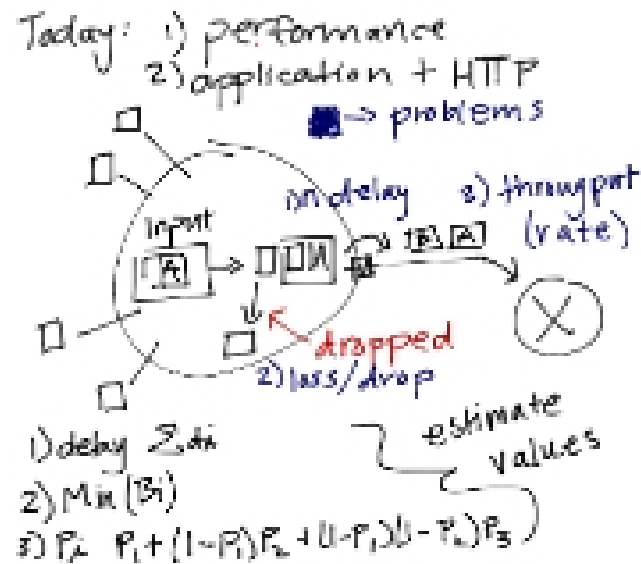 Today: 1) performance
2) application + HTTP
→ problems
1) delay
3) throughput
(rate)
Input
A
dropped
2) loss/drop
1) delay Σdi
2) Min (Bi)
3) Pi P1 + (1-P1)P2 + (1-P1)(1-P2)P3
estimate
values